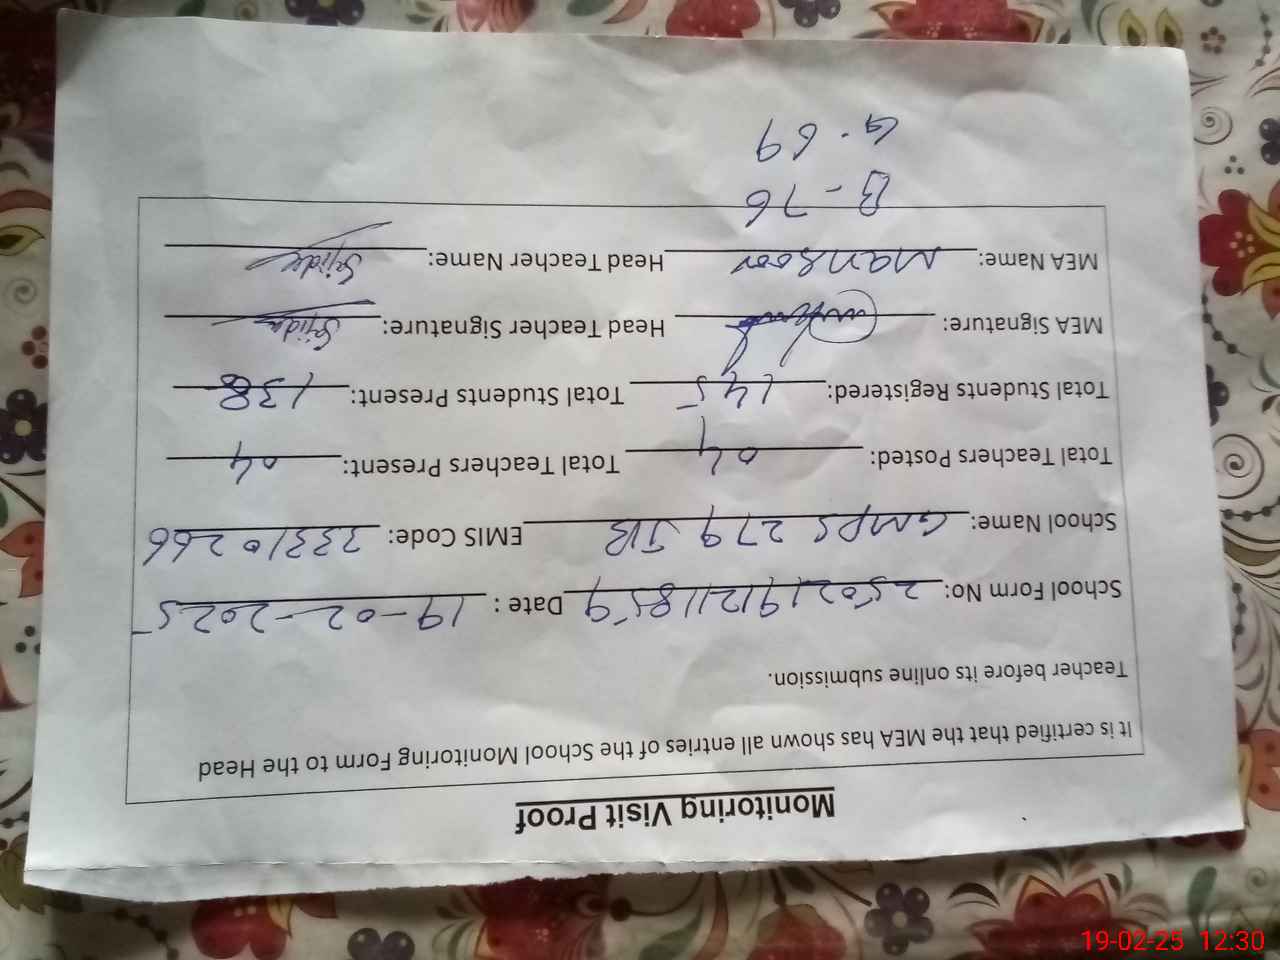 Monitoring Visit Proof
It is certified that the MEA has shown all entries of the School Monitoring Form to the Head
Teacher before its online submission.
School Form No: 250219121859 Date : 19-02-2025
School Name: GMPS 279 JB EMIS Code: 33310266
Total Teachers Posted: 04 Total Teachers Present: 04
Total Students Registered: 145 Total Students Present: 138
MEA Signature: Head Teacher Signature: Sajida
MEA Name: Mansoor Head Teacher Name: Sajida
B-76
G.69
19-02-25 12:30